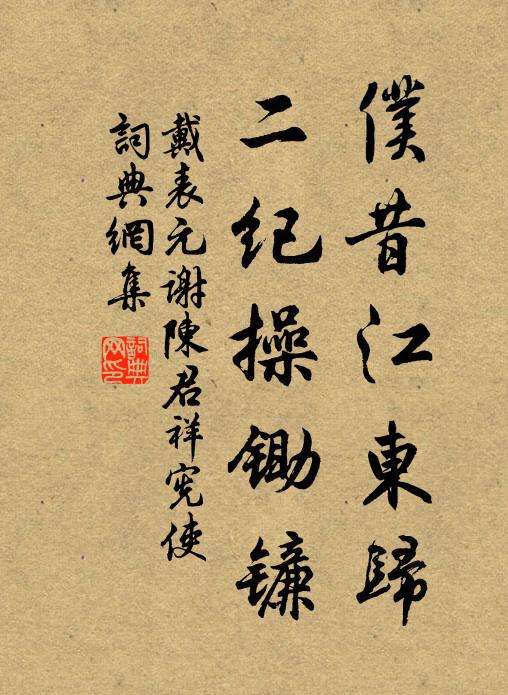 僕昔江東歸
二紀操鋤鐮
戴表元謝陳君祥宪使
詞典網集
詞典网印